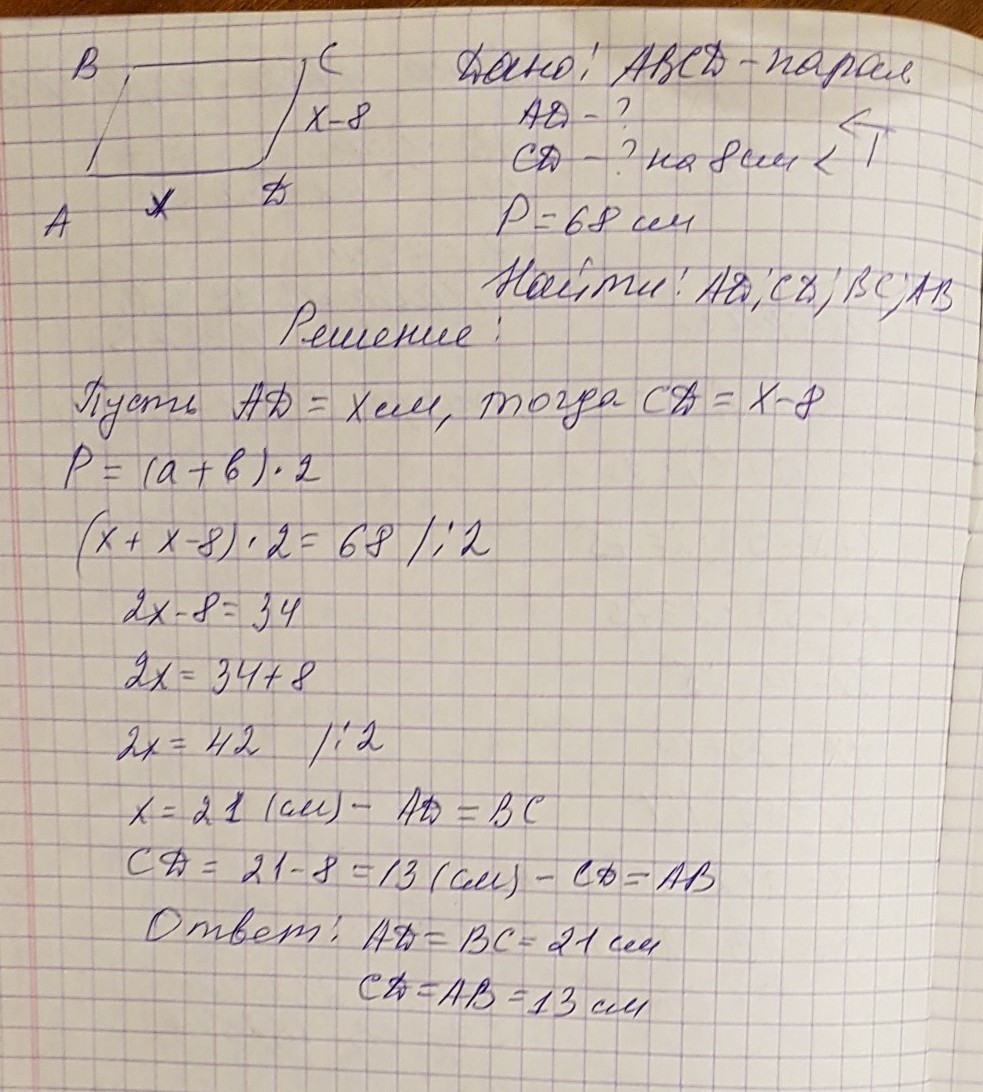 B C
x-8
A x D
Дано: ABCD-парал
AD-?
CD-? на 8см <
P=68 см
Найти: AD; CD; BC; AB
Решение:
Пусть AD = x см, тогда CD = x-8
P = (a+в)·2
(x+x-8)·2 = 68 /:2
2x-8=34
2x=34+8
2x=42 /:2
x=21 (см) - AD=BC
CD = 21-8=13 (см) - CD=AB
Ответ: AD=BC=21 см
CD=AB=13 см